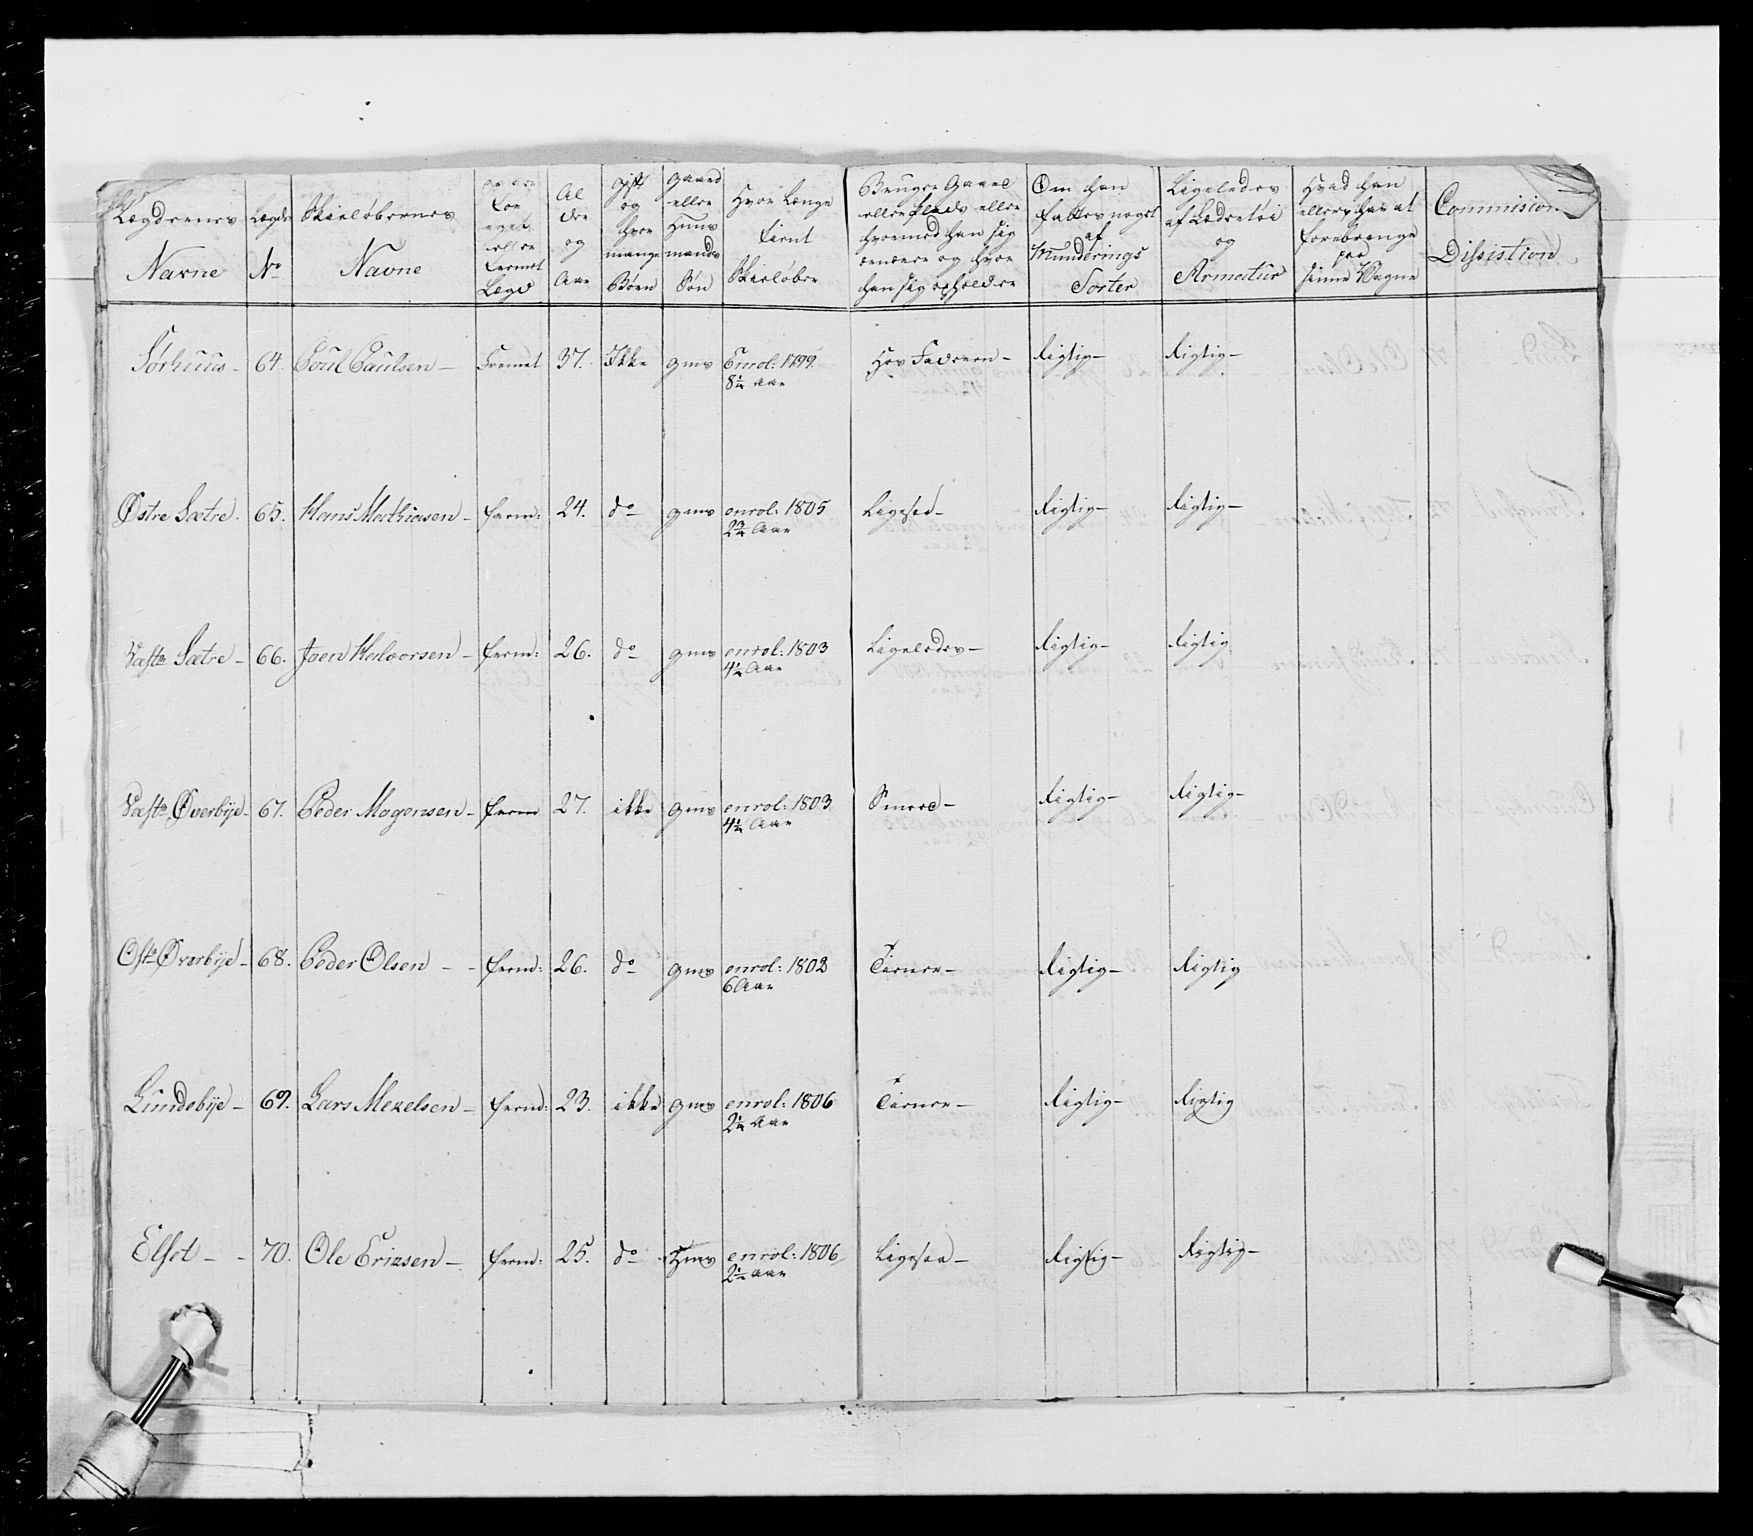 Lægdernes Navne | Lægds No | Skieløbernes Navne | eller fermet Lægd | Al der og Aar | gift og hvor mange Børn | gaard eller Huusmands Søn | Hvor Længe tient Skieløber | Bruger Gaard eller Plads eller hvormed han sig ernærer og hvor han sig opholder | Om han fattes noget af Munderings Sorter | Ligeledes af Lædertøi og Armatur | Hvad han ellers har at forebringe paa sinne Vegne | Commision Dissistion
Sørhuus – | 64 | Poul Paulsen – | Fremet | 37. | Ikke | gms | Enrol: 1799. 8¼ Aar | Hos Faderen – | Rigtig – | Rigtig –
Østre Sætre. | 65. | Hans Mathiasen – | frem: | 24. | do | gms | enrol: 1805 2¾ Aar | Ligesed – | Rigtig – | Rigtig –
Væstre Sætre – | 66. | Joen Halvorsen – | frem: | 26. | do | gms | enrol: 1803 4¼ Aar | Ligeledes – | Rigtig – | Rigtig
Væstre Øverbÿe – | 67. | Peder Mogensen – | frem | 27. | ikke | gms | enrol: 1803 4¼ Aar | Smeed – | Rigtig – | Rigtig –
Østre Øverbÿe – | 68. | Peder Olsen – – | frem: | 26. | do | gms | enrol: 1802 6 Aar | Tiener – | Rigtig – | Rigtig
Lundebÿe – | 69. | Lars Mekelsen – | frem: | 23. | ikke | gms | enrol: 1806 2¼ Aar | Tiener – | Rigtig – | Rigtig
Elset – – | 70. | Ole Ericsen – | frem: | 25. | do | Hms | enrol: 1806 2¼ Aar | Ligesaa – | Rigtig – | Rigtig –